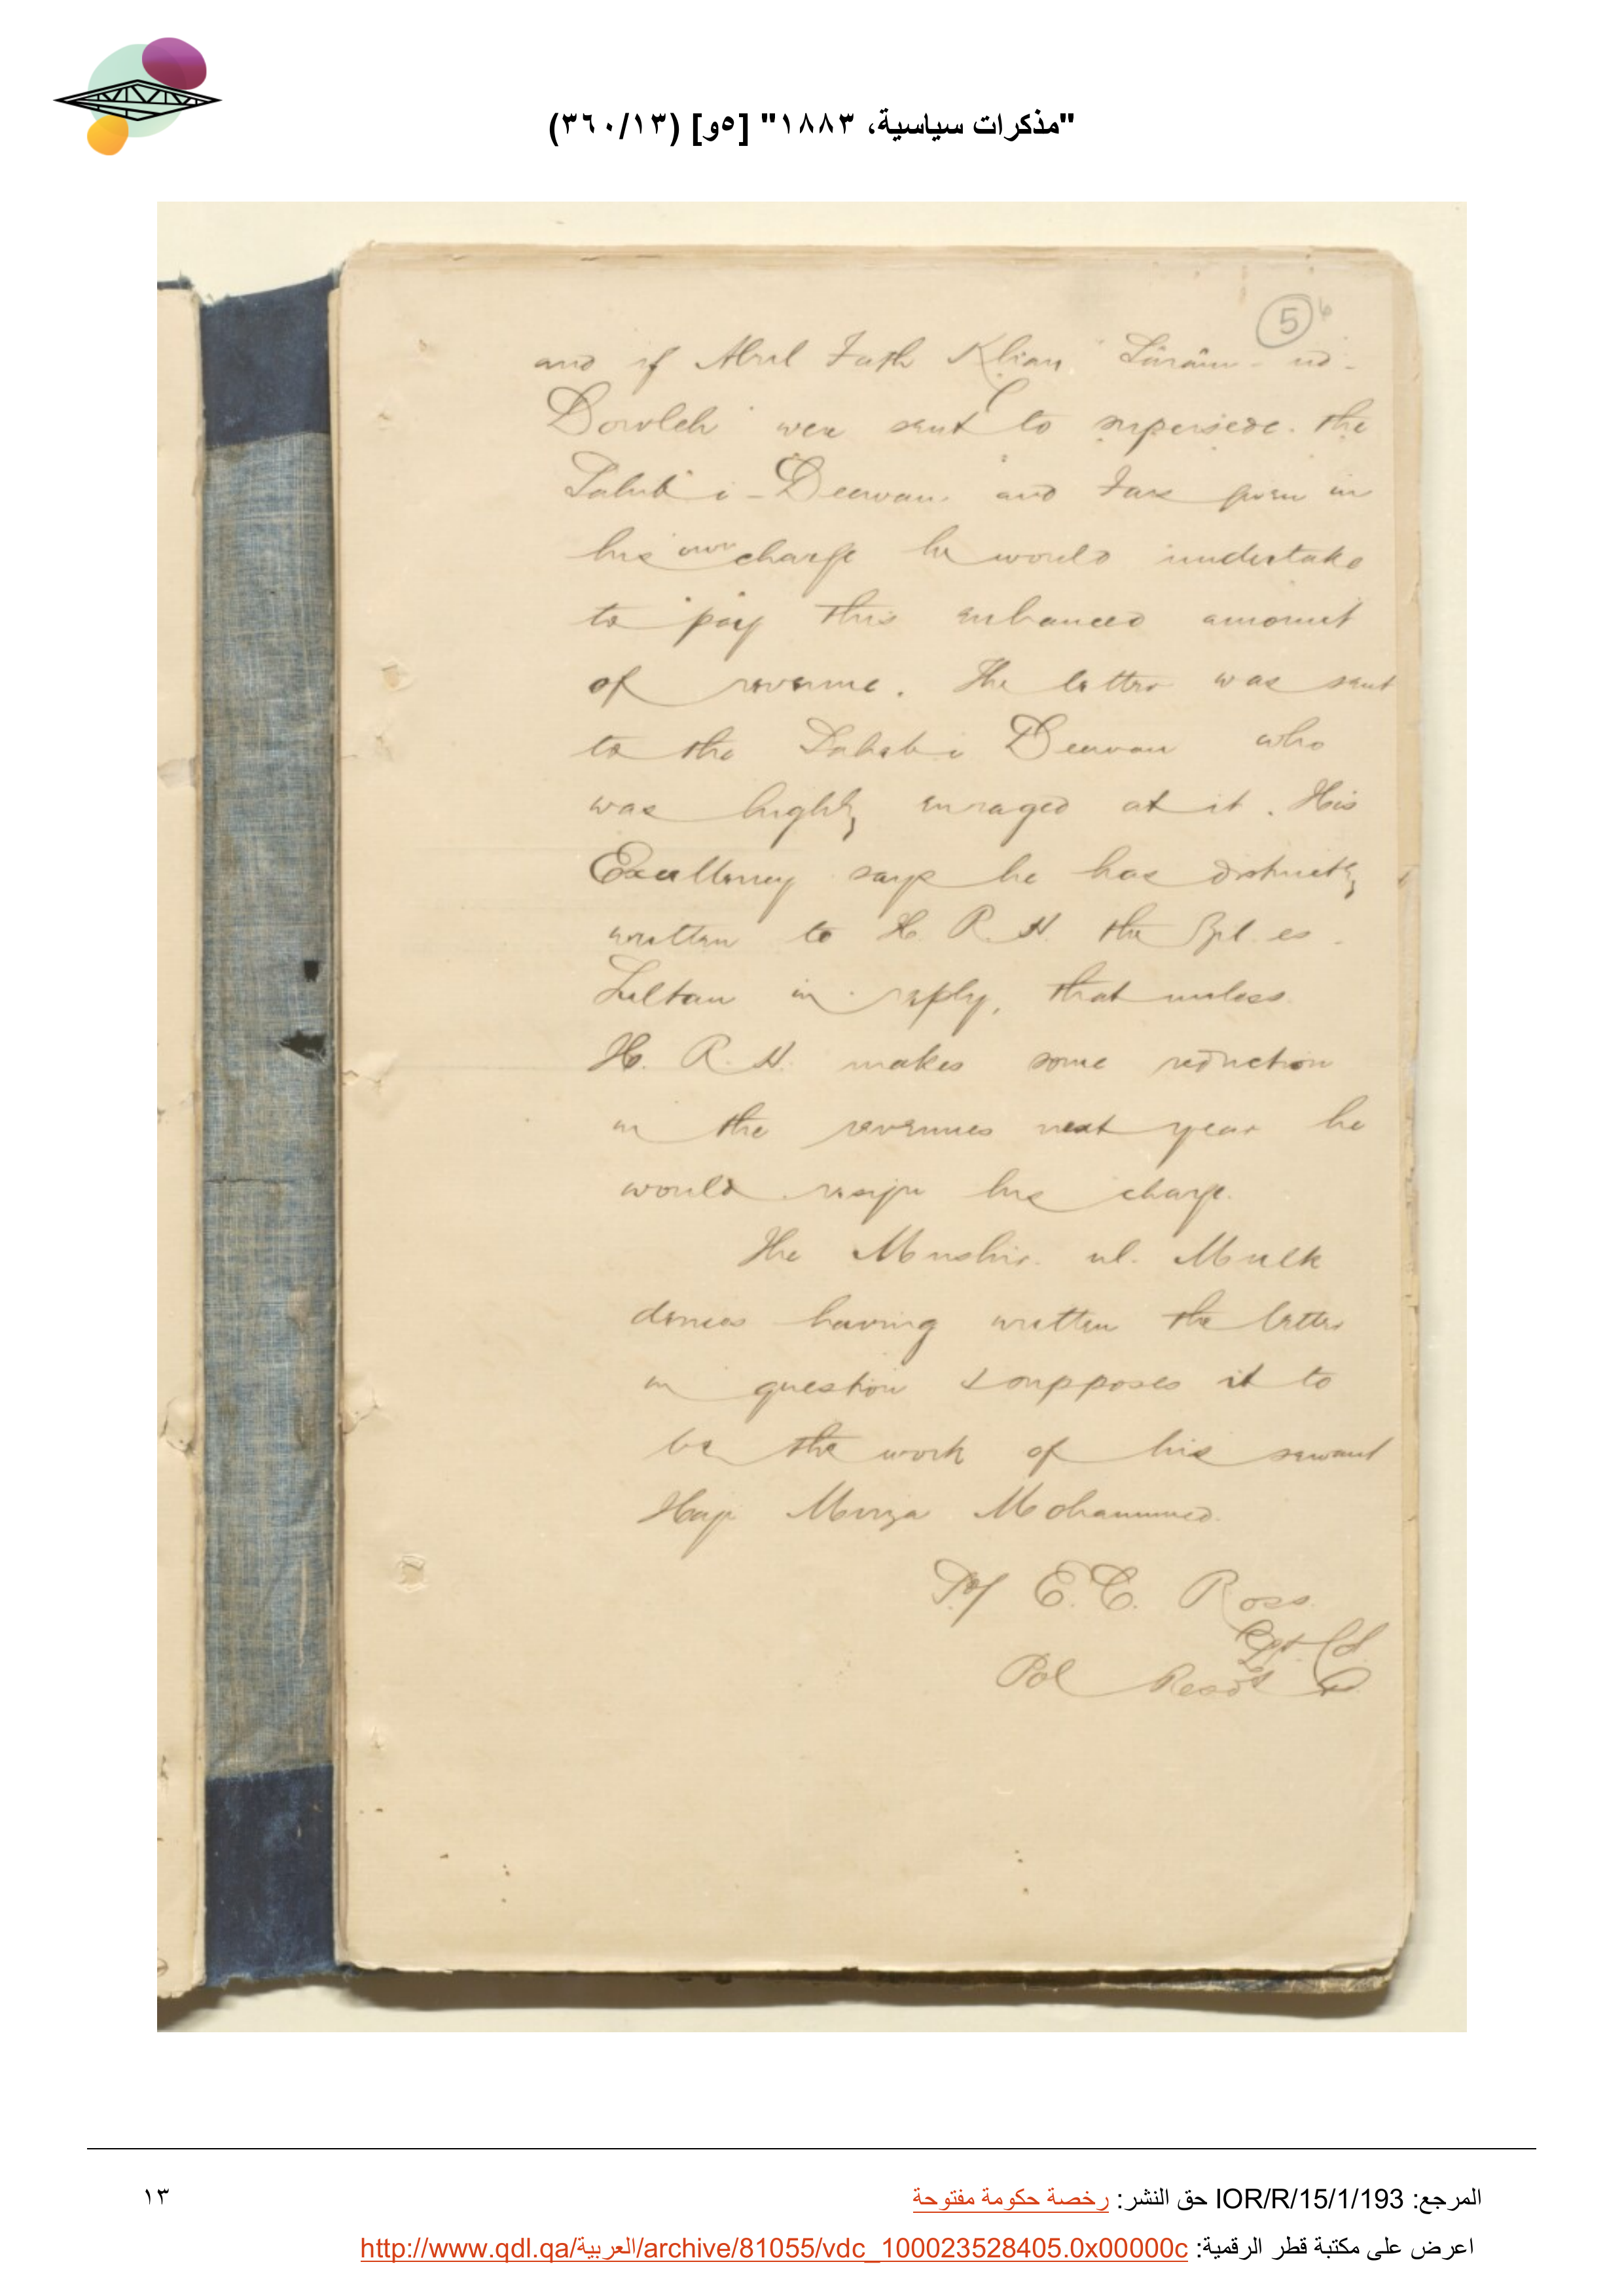 "مذكرات سياسية، ١٨٨٣" [٥و] (٣٦٠/١٣)
5
6
and if Abul Fath Khan
Dowleh were sent to supersede the
Sahib i-Deewan and Fars given in
his own charge he would undertake
to pay this enhanced amount
of revenue. The letter was sent
to the Sahib i Deewan who
was highly enraged at it. His
Excellency says he has distinctly
written to H. R. H. the Zil-es-
Sultan in reply, that unless
H. R. H. makes some reduction
in the revenues next year he
would resign his charge.
The Mushir-ul-Mulk
denies having written the letter
in question & supposes it to
be the work of his servant
Haji Mirza Mohammed.
E. C. Ross
Lt. Col.
Pol Resdt
المرجع: IOR/R/15/1/193 حق النشر: رخصة حكومة مفتوحة
١٣
اعرض على مكتبة قطر الرقمية: http://www.qdl.qa/العربية/archive/81055/vdc_100023528405.0x00000c